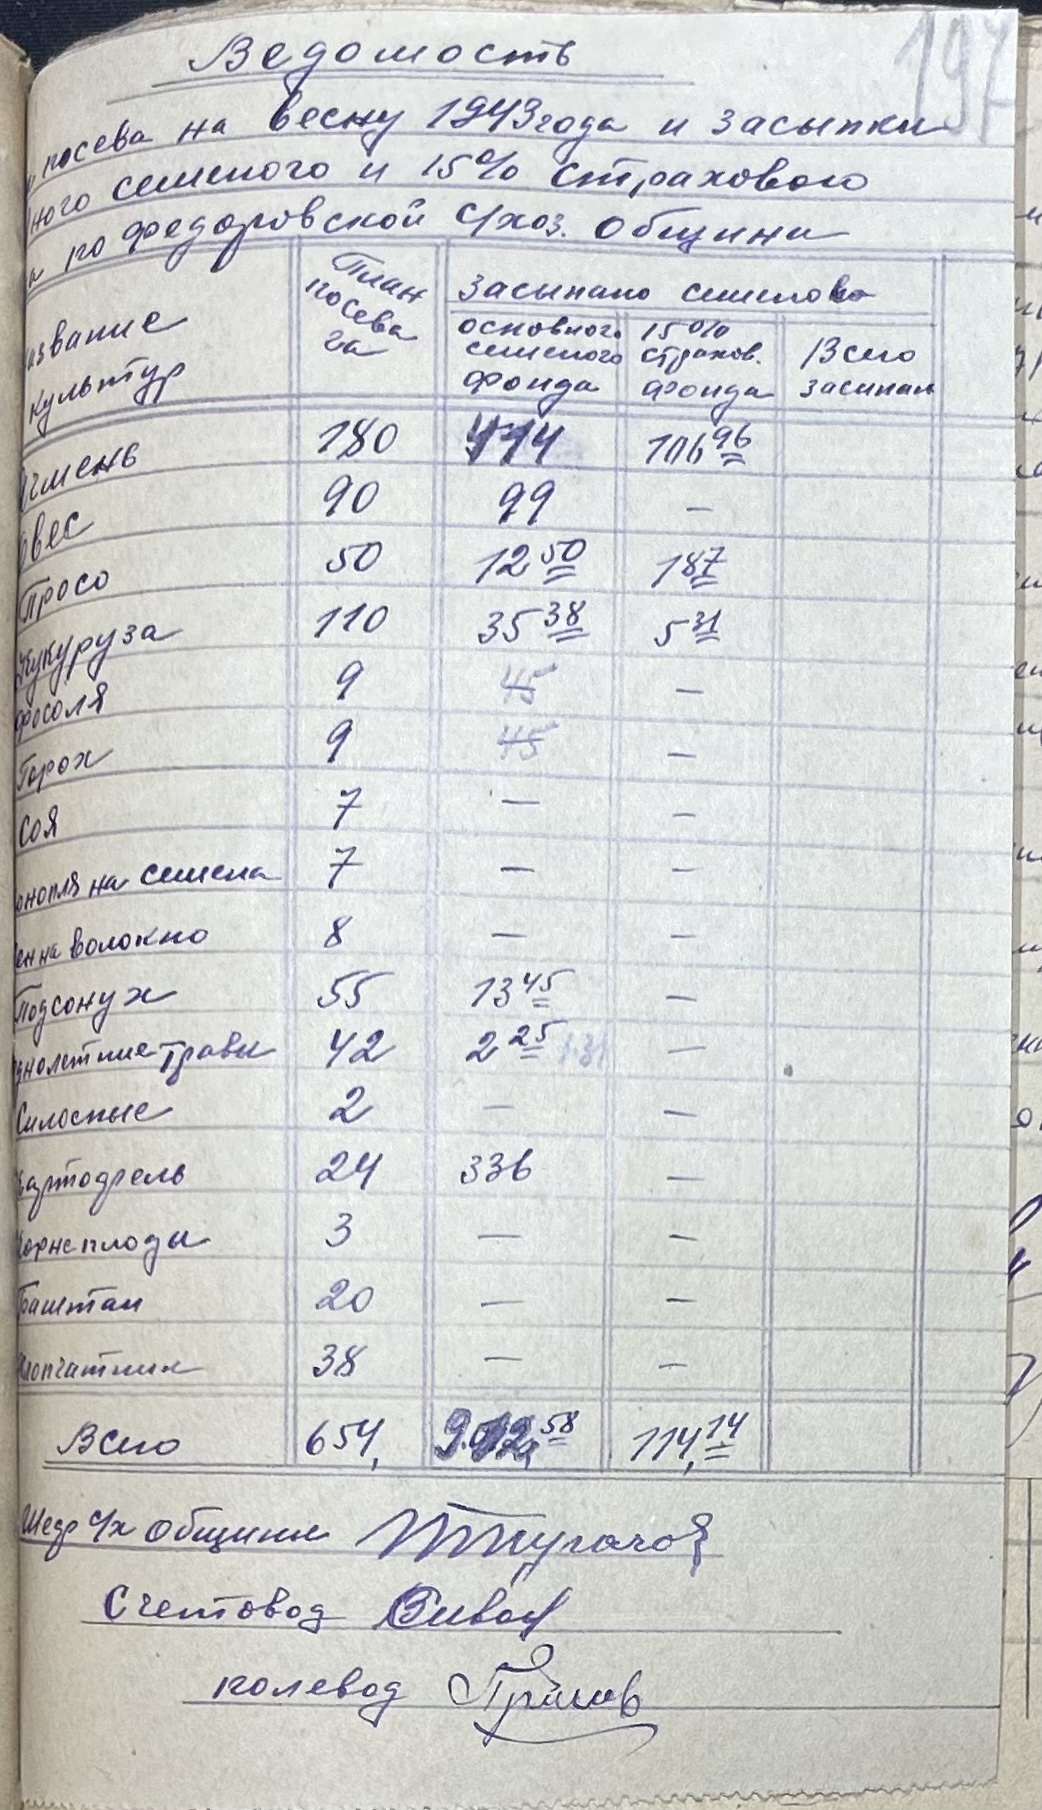 197
Ведомость
посева на весну 1943 года и засыпки
ного семеного и 15% страхового
а по Федоровской с/хоз. Общины
азвание культур План посева га Засыпано семенов
основного семеного фонда 15% страхов. фонда Всего засыпан
Ячмень 180 106 96
Овес 90 99 –
Просо 50 12 50 1 87
Кукуруза 110 35 38 5 31
Фосоля 9 45 –
Горох 9 45 –
Соя 7 – –
онопля на семена 7 – –
ен на волокно 8 – –
Подсонух 55 13 45 –
днолетние травы 42 2 25 –
Силосные 2 – –
Картофель 24 336 –
Корнеплоды 3 – –
Баштан 20 – –
Хлопчатник 38 – –
Всего 654, 58 114,14
с/х общины
Счетовод
полевод